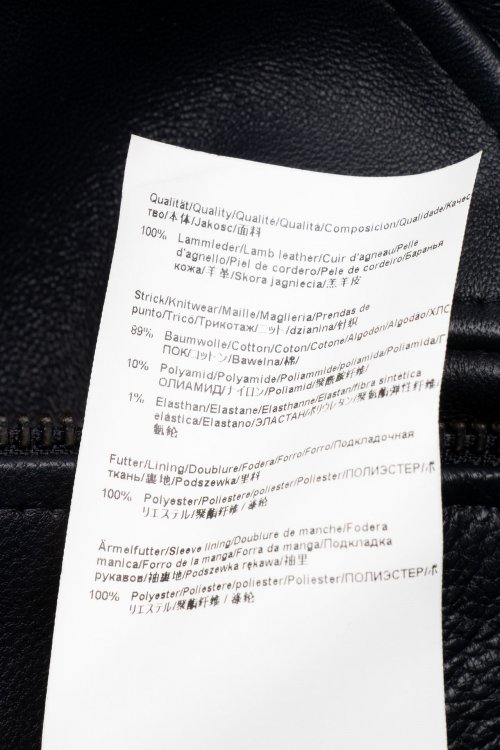 Qualität/Quality/Qualité/Qualità/Composicion/Qualidade/Качес
тво/本体/Jakosc/面料
100% Lammleder/Lamb leather/Cuir d'agneau/Pelle
d'agnello/Piel de cordero/Pele de cordeiro/Баранья
кожа/羊革/Skora jagniecia/羔羊皮
Strick/Knitwear/Maille/Maglieria/Prendas de
punto/Tricô/Трикотаж/ニット/dzianina/针织
89% Baumwolle/Cotton/Coton/Cotone/Algodón/Algodão/ХЛО
ПОК/コットン/Bawelna/棉/
10% Polyamid/Polyamide/Poliammide/poliamida/Poliamida/П
ОЛИАМИД/ナイロン/Poliamid/聚酰胺纤维/
1% Elasthan/Elastane/Elasthanne/Elastan/fibra sintética
elástica/Elastano/ЭЛАСТАН/ポリウレタン/聚氨酯弹性纤维/
氨纶
Futter/Lining/Doublure/Fodera/Forro/Forro/Подкладочная
ткань/裏地/Podszewka/里料
100% Polyester/Poliestere/poliester/Poliester/ПОЛИЭСТЕР/ポ
リエステル/聚酯纤维 / 涤纶
Ärmelfutter/Sleeve lining/Doublure de manche/Fodera
manica/Forro de la manga/Forro da manga/Подкладка
рукавов/袖裏地/Podszewka rękawa/袖里
100% Polyester/Poliestere/poliester/Poliester/ПОЛИЭСТЕР/ポ
リエステル/聚酯纤维 / 涤纶